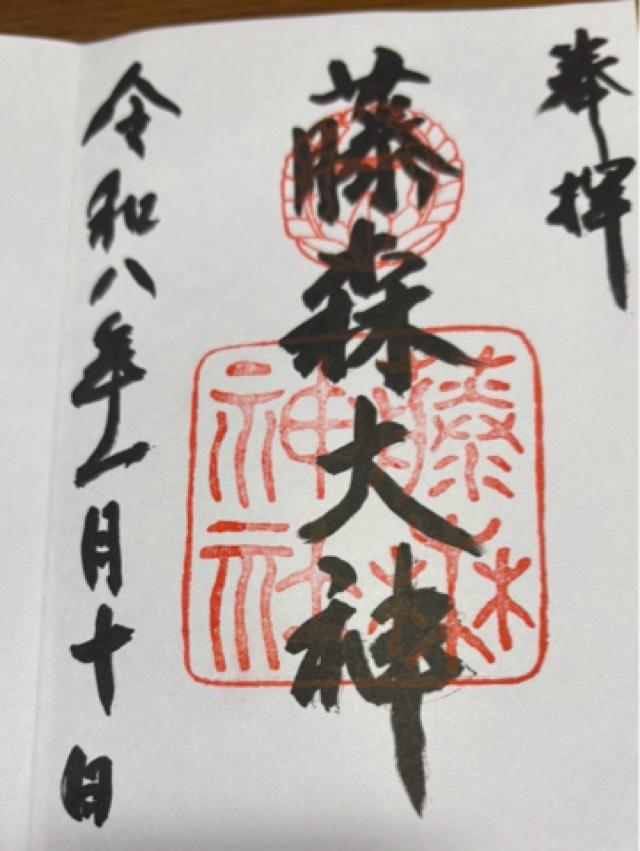 奉拝
藤森大神
藤森神社
令和八年一月十日